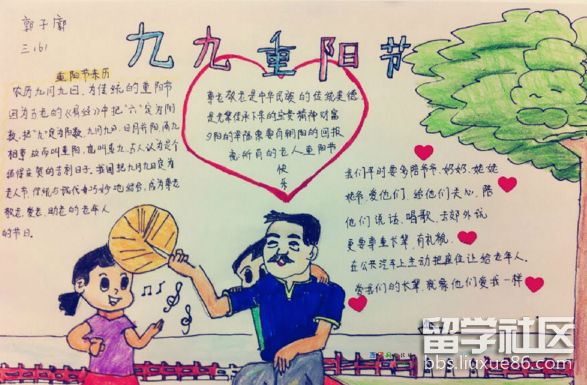 郭子廓
三.161
九九重阳节
重阳节来历
农历九月九日,为传统的重阳节
因为古老的《易经》中把"六"定为阴
数,把"九"定为阳数,九月九日,日月并阳,两九
相重,故而叫重阳,也叫重九,古人认为是个
值得庆贺的吉利日子。我国把九月九日定为
老人节,传统与现代巧妙地结合,成为尊老
敬老、爱老、助老的老年人
的节日。
尊老敬老是中华民族的传统美德
是先辈传承下来的宝贵精神财富
夕阳的幸福来要有朝阳的回报
祝所有的老人重阳节
快
乐
我们平时要多陪爷爷、奶奶、姥姥
姥爷,爱他们,给他们关心,陪
他们说话、唱歌、去郊外玩
更要尊重长辈,有礼貌,
在公共汽车上主动把座位让给老年人。
爱我们的长辈,就像他们爱我一样
留学社区
bbs.liuxue86.com